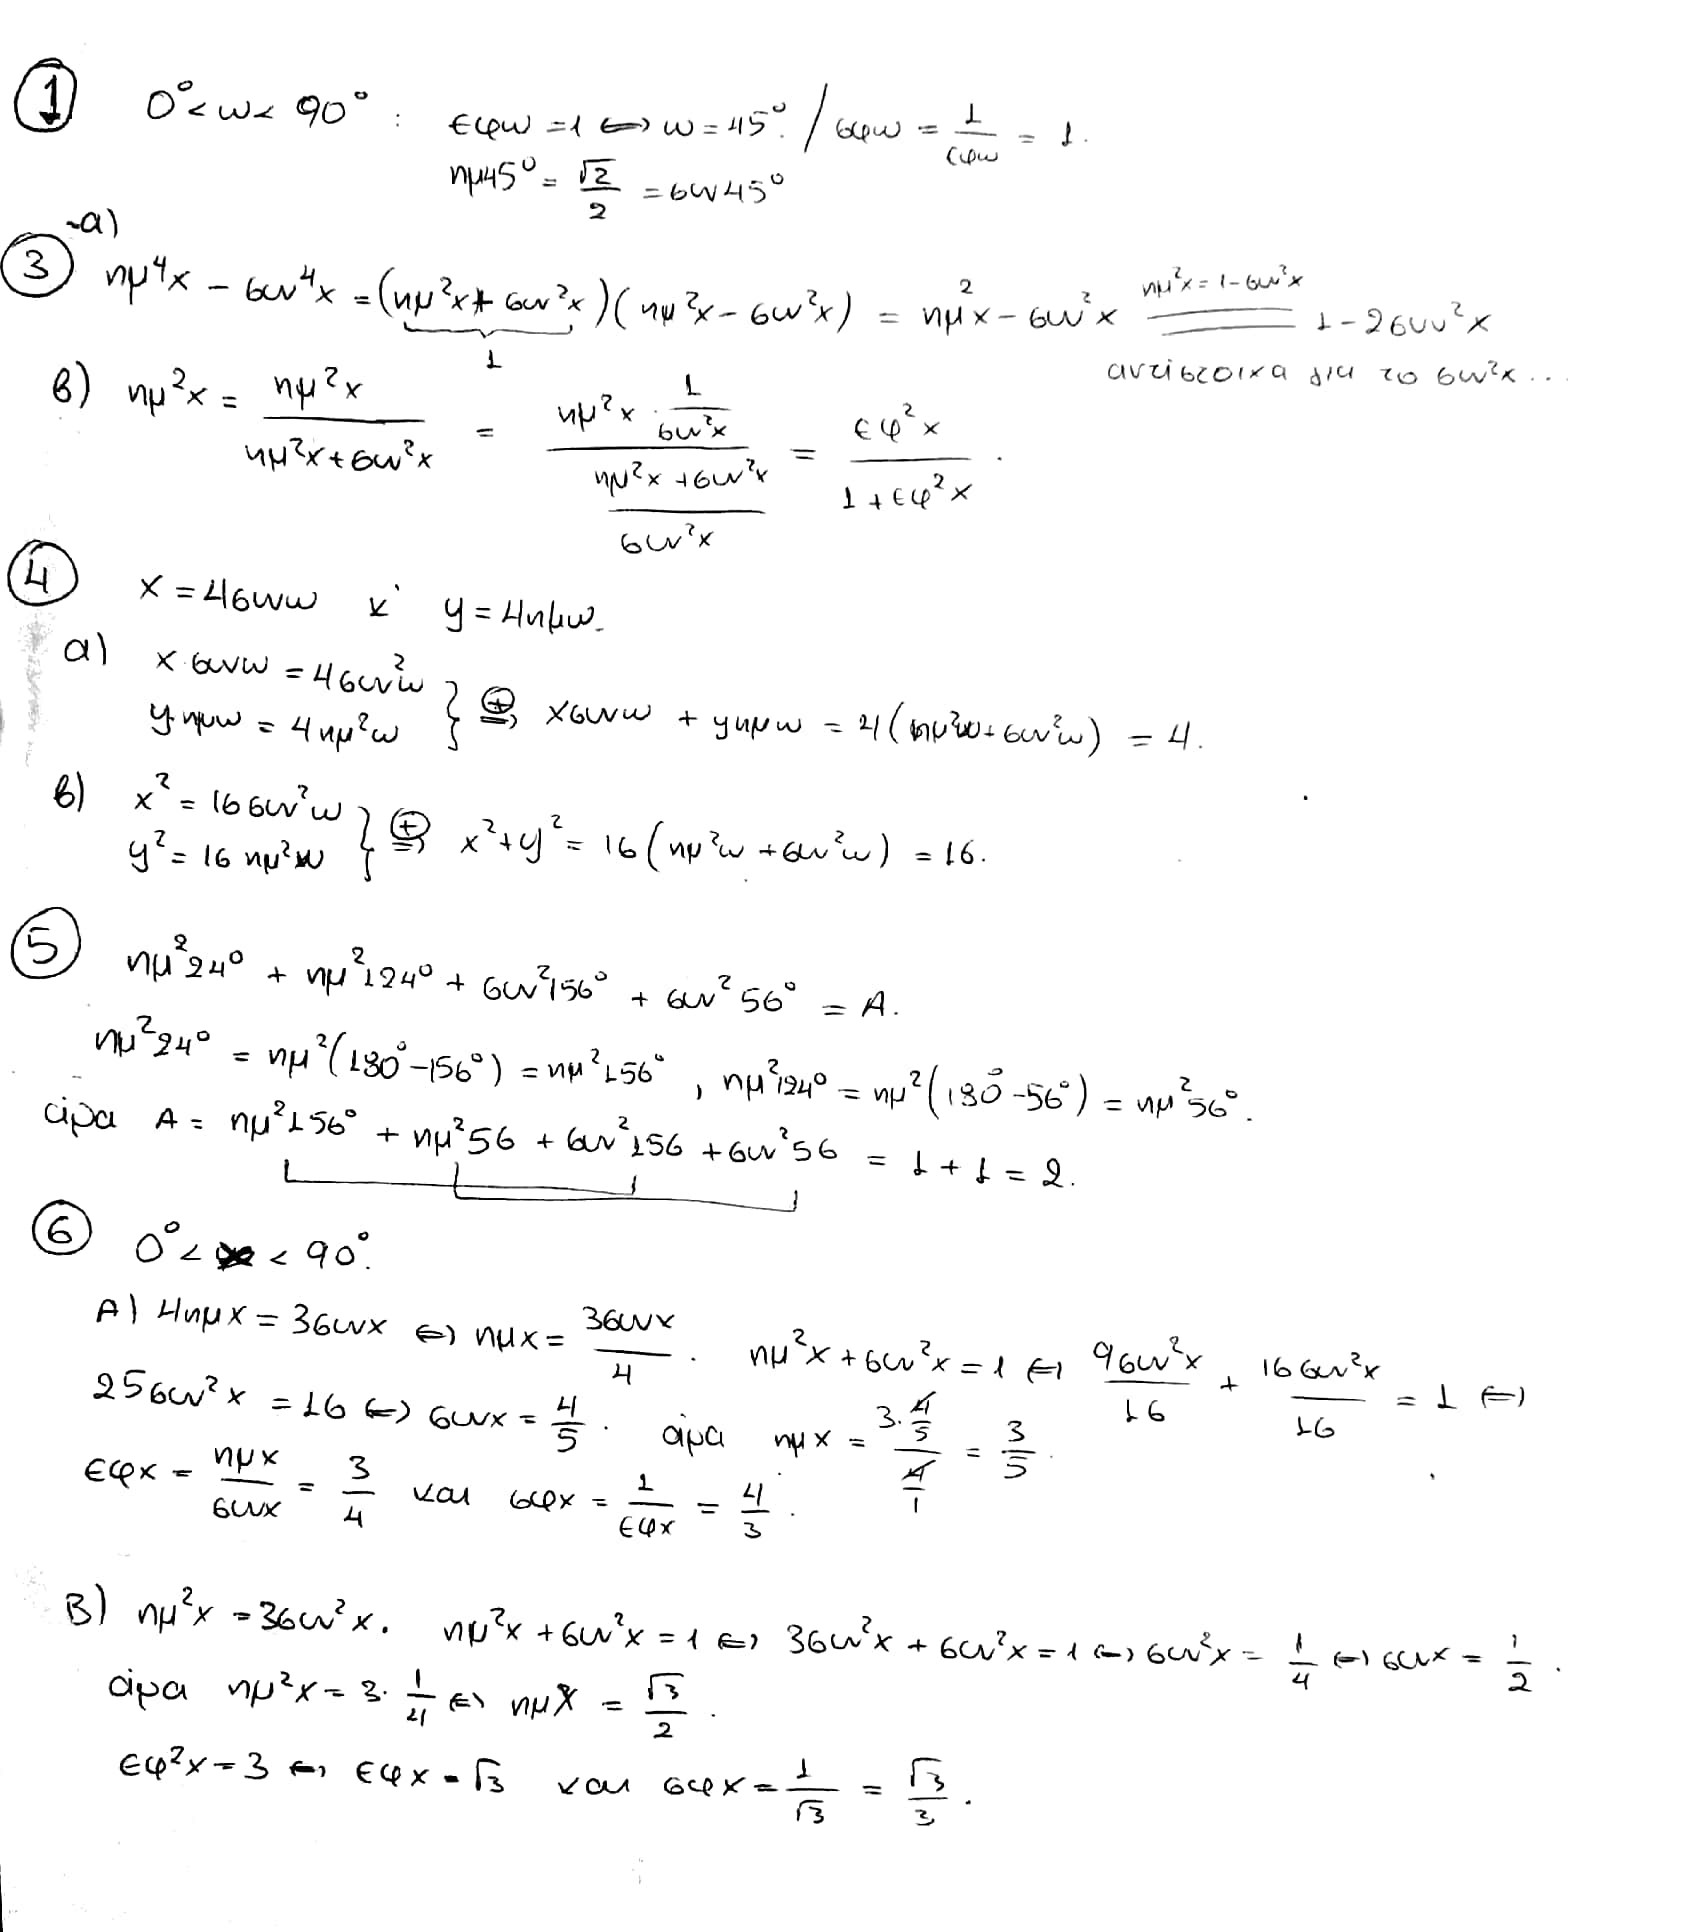 ① 0° < ω < 90° : εφω = 1 ⇔ ω = 45°. / σφω = 1/εφω = 1.
ημ45° = √2/2 = συν45°
③ α) ημ⁴x − συν⁴x = (ημ²x + συν²x)(ημ²x − συν²x) = ημ²x − συν²x = 1 − 2συν²x
1
ημ²x = 1 − συν²x
αντίστοιχα για το συν²x...
β) ημ²x = ημ²x / (ημ²x + συν²x) = (ημ²x · 1/συν²x) / ((ημ²x + συν²x)/συν²x) = εφ²x / (1 + εφ²x).
④ x = 4συνω κ' y = 4ημω.
α) x·συνω = 4συν²ω
y·ημω = 4ημ²ω } ⊕⇒ xσυνω + yημω = 4(ημ²ω + συν²ω) = 4.
β) x² = 16συν²ω
y² = 16ημ²ω } ⊕⇒ x² + y² = 16(ημ²ω + συν²ω) = 16.
⑤ ημ²24° + ημ²124° + συν²156° + συν²56° = A.
ημ²24° = ημ²(180° − 156°) = ημ²156°, ημ²124° = ημ²(180° − 56°) = ημ²56°.
άρα A = ημ²156° + ημ²56 + συν²156 + συν²56 = 1 + 1 = 2.
⑥ 0° < x < 90°.
A) 4ημx = 3συνx ⇔ ημx = 3συνx/4. ημ²x + συν²x = 1 ⇔ 9συν²x/16 + 16συν²x/16 = 1 ⇔
25συν²x = 16 ⇔ συνx = 4/5. άρα ημx = (3·4/5)/(4/1) = 3/5.
εφx = ημx/συνx = 3/4 και σφx = 1/εφx = 4/3.
B) ημ²x = 3συν²x. ημ²x + συν²x = 1 ⇔ 3συν²x + συν²x = 1 ⇔ συν²x = 1/4 ⇔ συνx = 1/2.
άρα ημ²x = 3·1/4 ⇔ ημx = √3/2.
εφ²x = 3 ⇔ εφx = √3 και σφx = 1/√3 = √3/3.